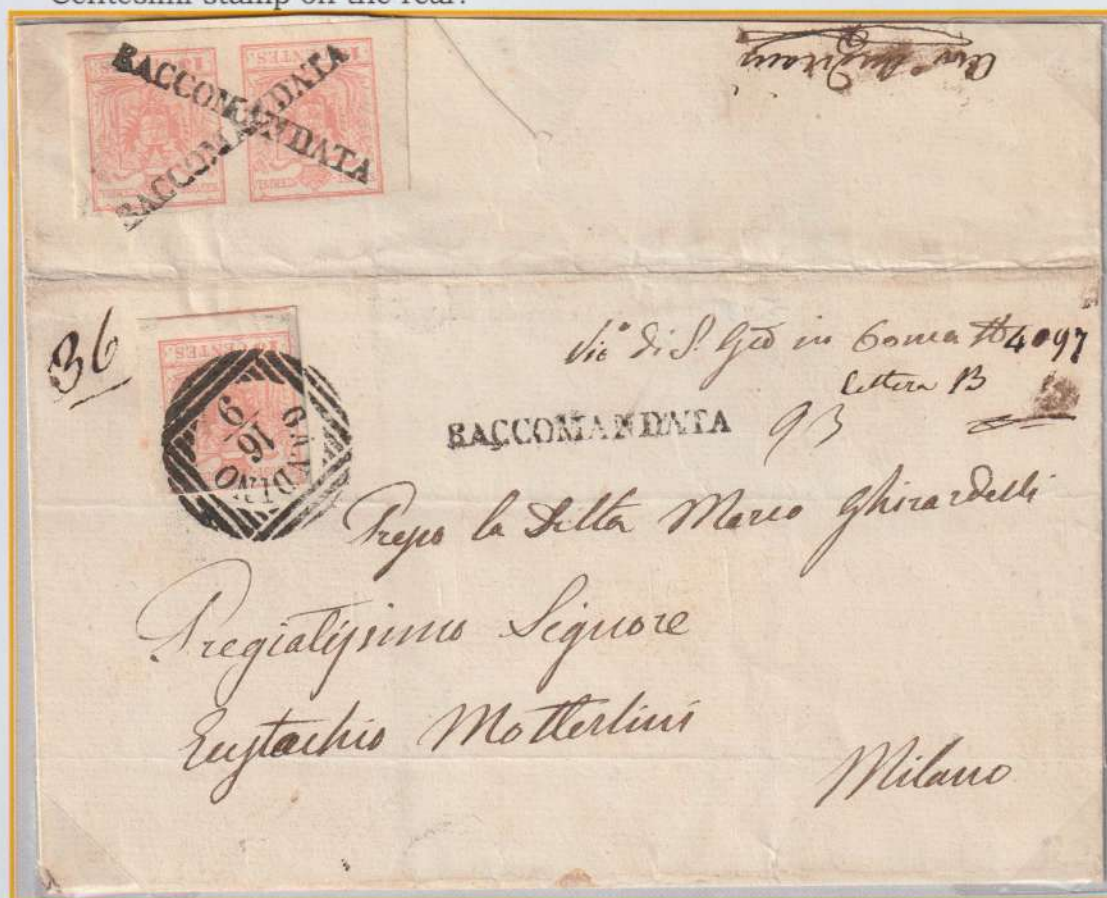 Centesimi stamp on the rear.
15 CENTES.
15 CENTES.
RACCOMANDATA
RACCOMANDATA
36
15 CENTES.
GANDINO
16/9
in Conca
4097
Lettera B
RACCOMANDATA
93
Prego la Ditta Marco Ghirardelli
Pregiatissimo Signore
Eustachio Motterlini
Milano